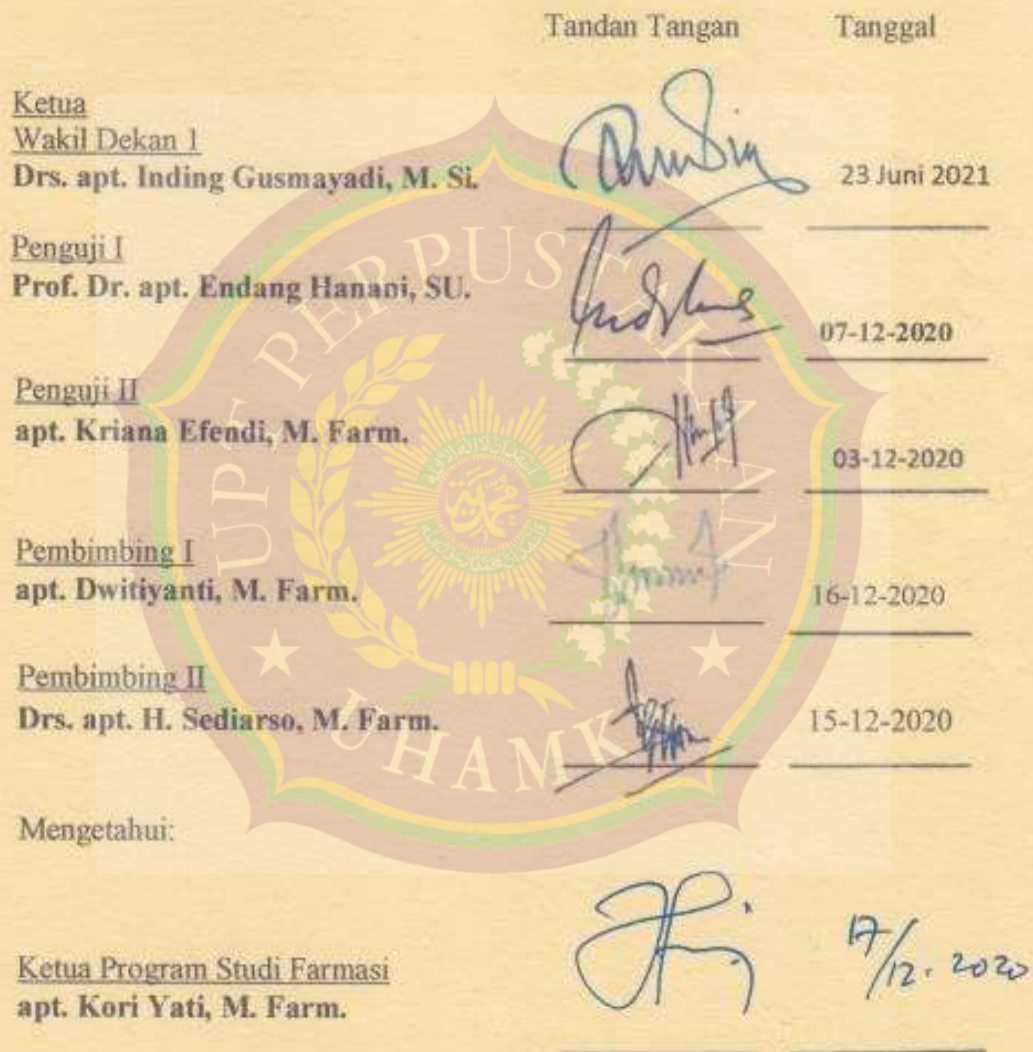 Tandan Tangan Tanggal
Ketua
Wakil Dekan 1
Drs. apt. Inding Gusmayadi, M. Si.
23 Juni 2021
Penguji I
Prof. Dr. apt. Endang Hanani, SU.
07-12-2020
Penguji II
apt. Kriana Efendi, M. Farm.
03-12-2020
Pembimbing I
apt. Dwitiyanti, M. Farm.
16-12-2020
Pembimbing II
Drs. apt. H. Sediarso, M. Farm.
15-12-2020
Mengetahui:
17/12. 2020
Ketua Program Studi Farmasi
apt. Kori Yati, M. Farm.
UPT PERPUSTAKAAN
UHAMKA